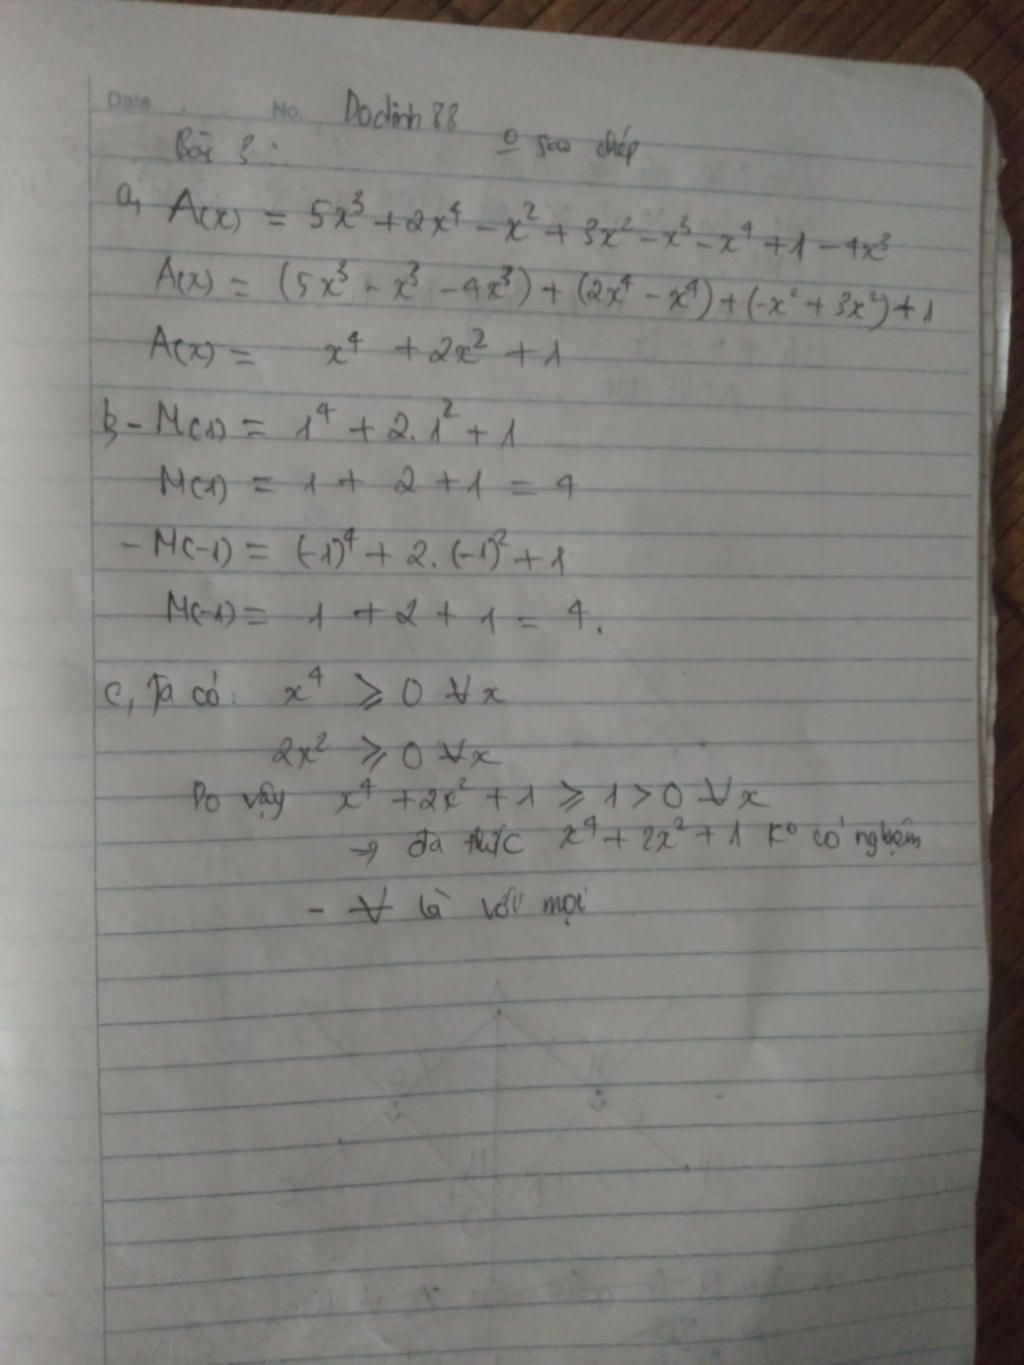 Date No. Dodinh 88
Bài 3: o sao chép
a, A(x) = 5x³ + 2x⁴ - x² + 3x² - x³ - x⁴ + 1 - 4x³
A(x) = (5x³ - x³ - 4x³) + (2x⁴ - x⁴) + (-x² + 3x²) + 1
A(x) = x⁴ + 2x² + 1
b, - M(1) = 1⁴ + 2.1² + 1
M(1) = 1 + 2 + 1 = 4
- M(-1) = (-1)⁴ + 2.(-1)² + 1
M(-1) = 1 + 2 + 1 = 4.
c, Ta có: x⁴ ⩾ 0 ∀x
2x² ⩾ 0 ∀x
Do vậy x⁴ + 2x² + 1 ⩾ 1 > 0 ∀x
→ đa thức x⁴ + 2x² + 1 k° có nghiệm
- ∀ là với mọi